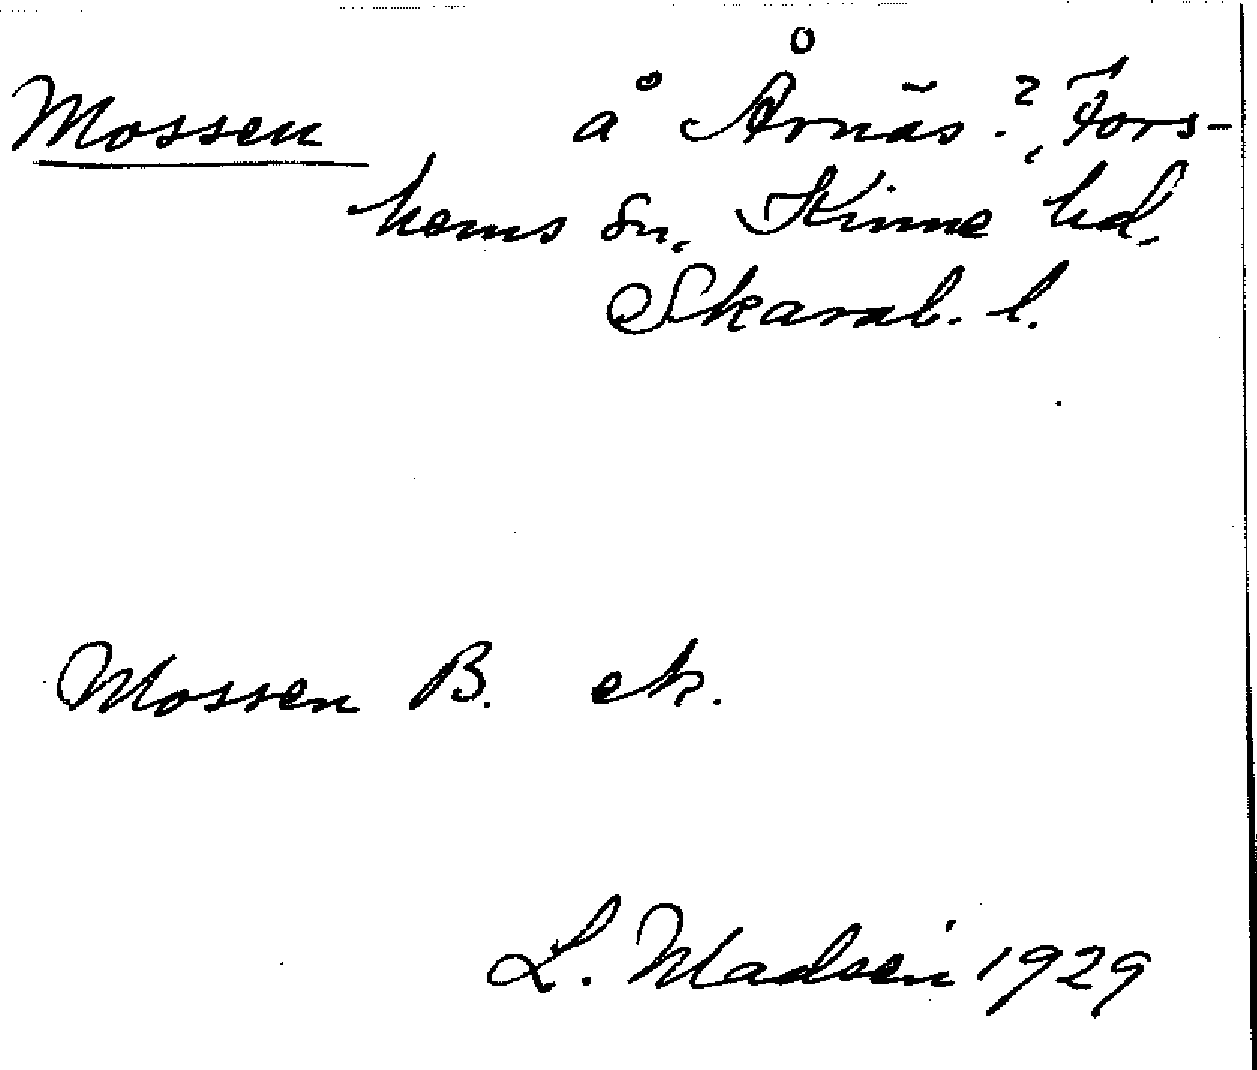 Mossen å Årnäs?, Fors-
hems sn, Kinne hd,
Skarab. l.
Mossen B. ek.
L. Madsén 1929